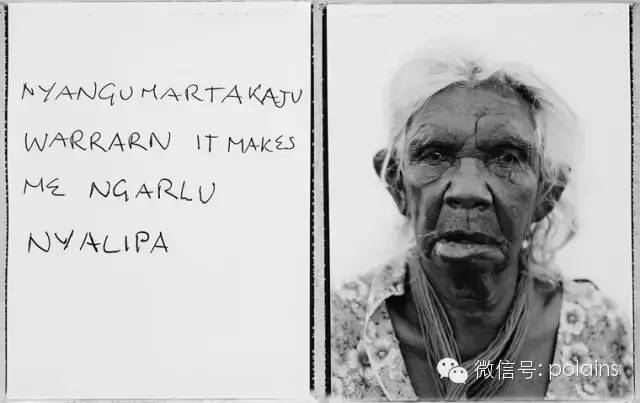 NYANGUMARTAKAJU
WARRARN IT MAKES
ME NGARLU
NYALIPA
微信号: polains